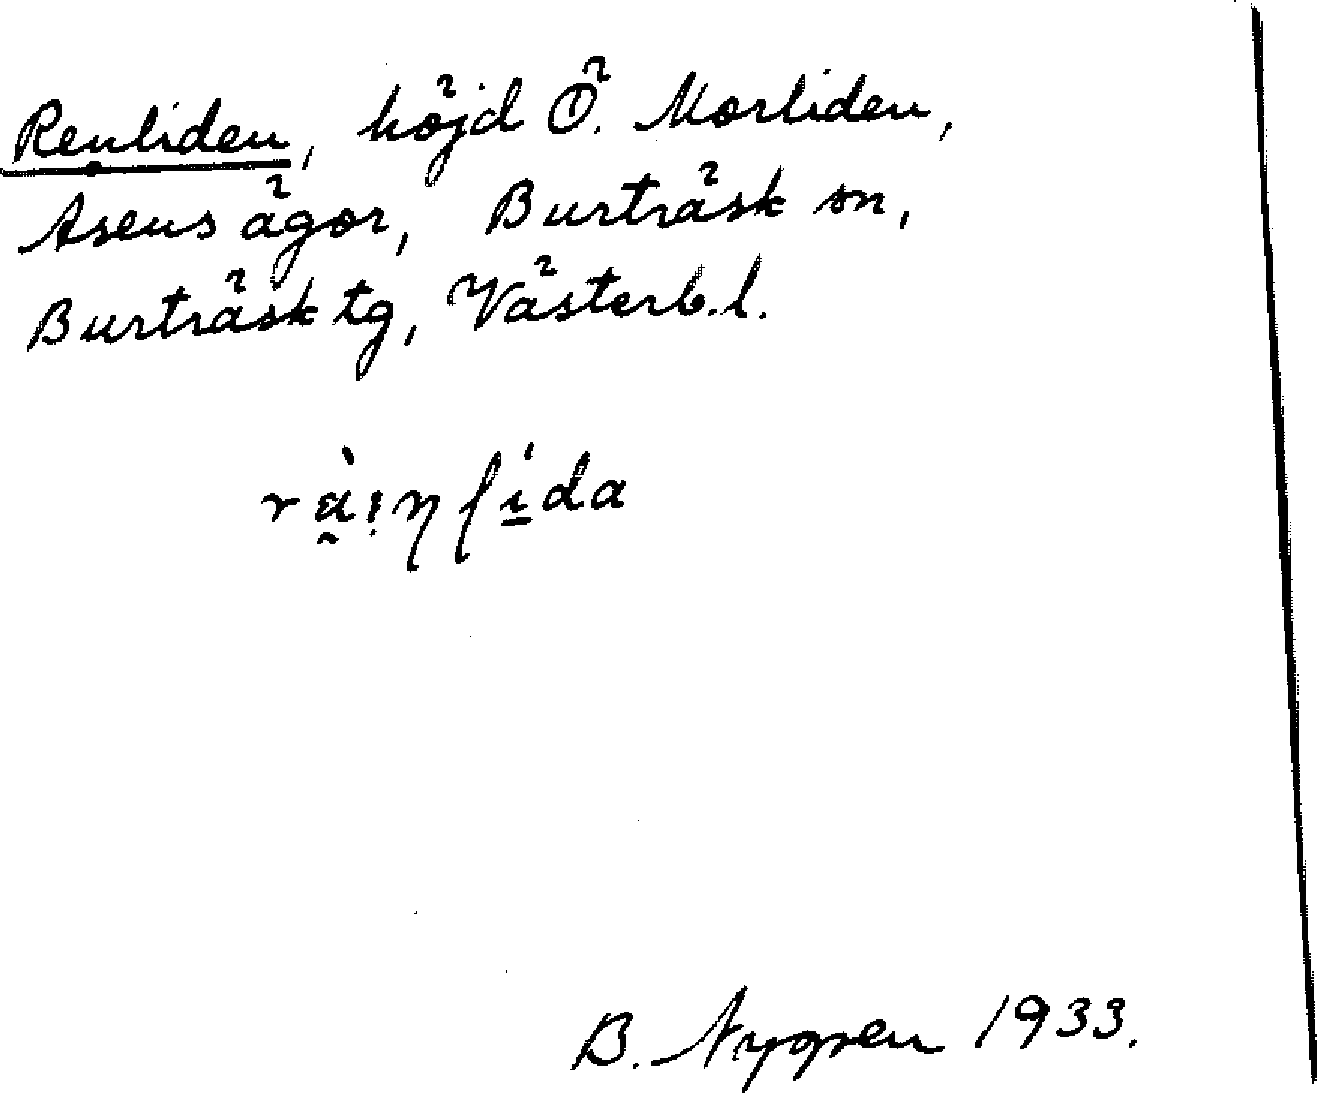 Renliden, höjd Ö. Morliden,
Åsens ägor, Burträsk sn,
Burträsk tg, Västerb. l.
B. Nygren 1933.